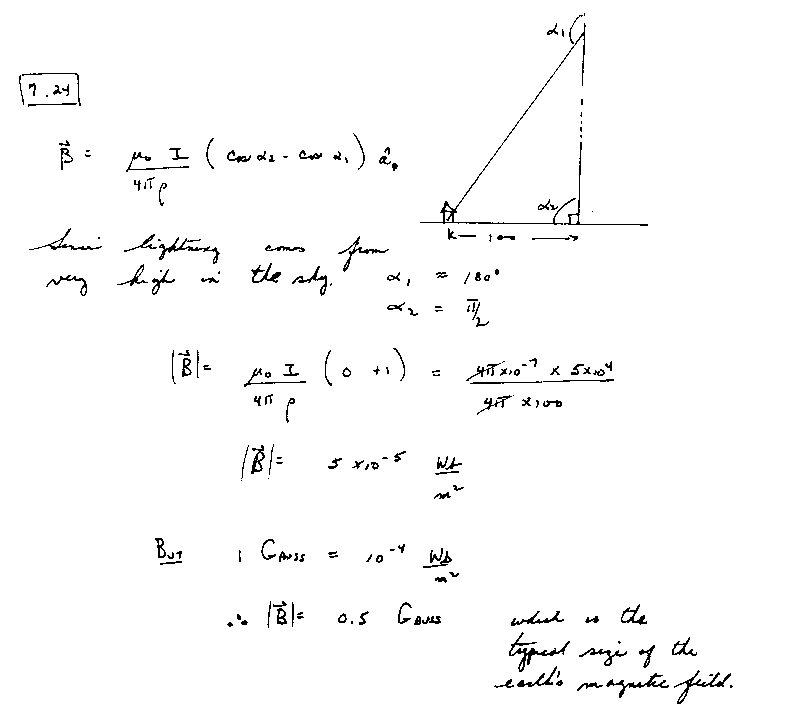 7.24
α₁
B⃗ = μ₀ I / 4πρ ( cos α₂ - cos α₁ ) âᵩ
α₂
100
Since lightning comes from
very high in the sky. α₁ ≈ 180°
α₂ = π/2
|B⃗| = μ₀ I / 4π ρ ( 0 + 1 ) = 4π x 10⁻⁷ x 5x10⁴ / 4π x 100
|B⃗| = 5 x 10⁻⁵ Wb / m²
BUT 1 GAUSS = 10⁻⁴ Wb / m²
∴ |B⃗| = 0.5 GAUSS which is the
typical size of the
earth's magnetic field.